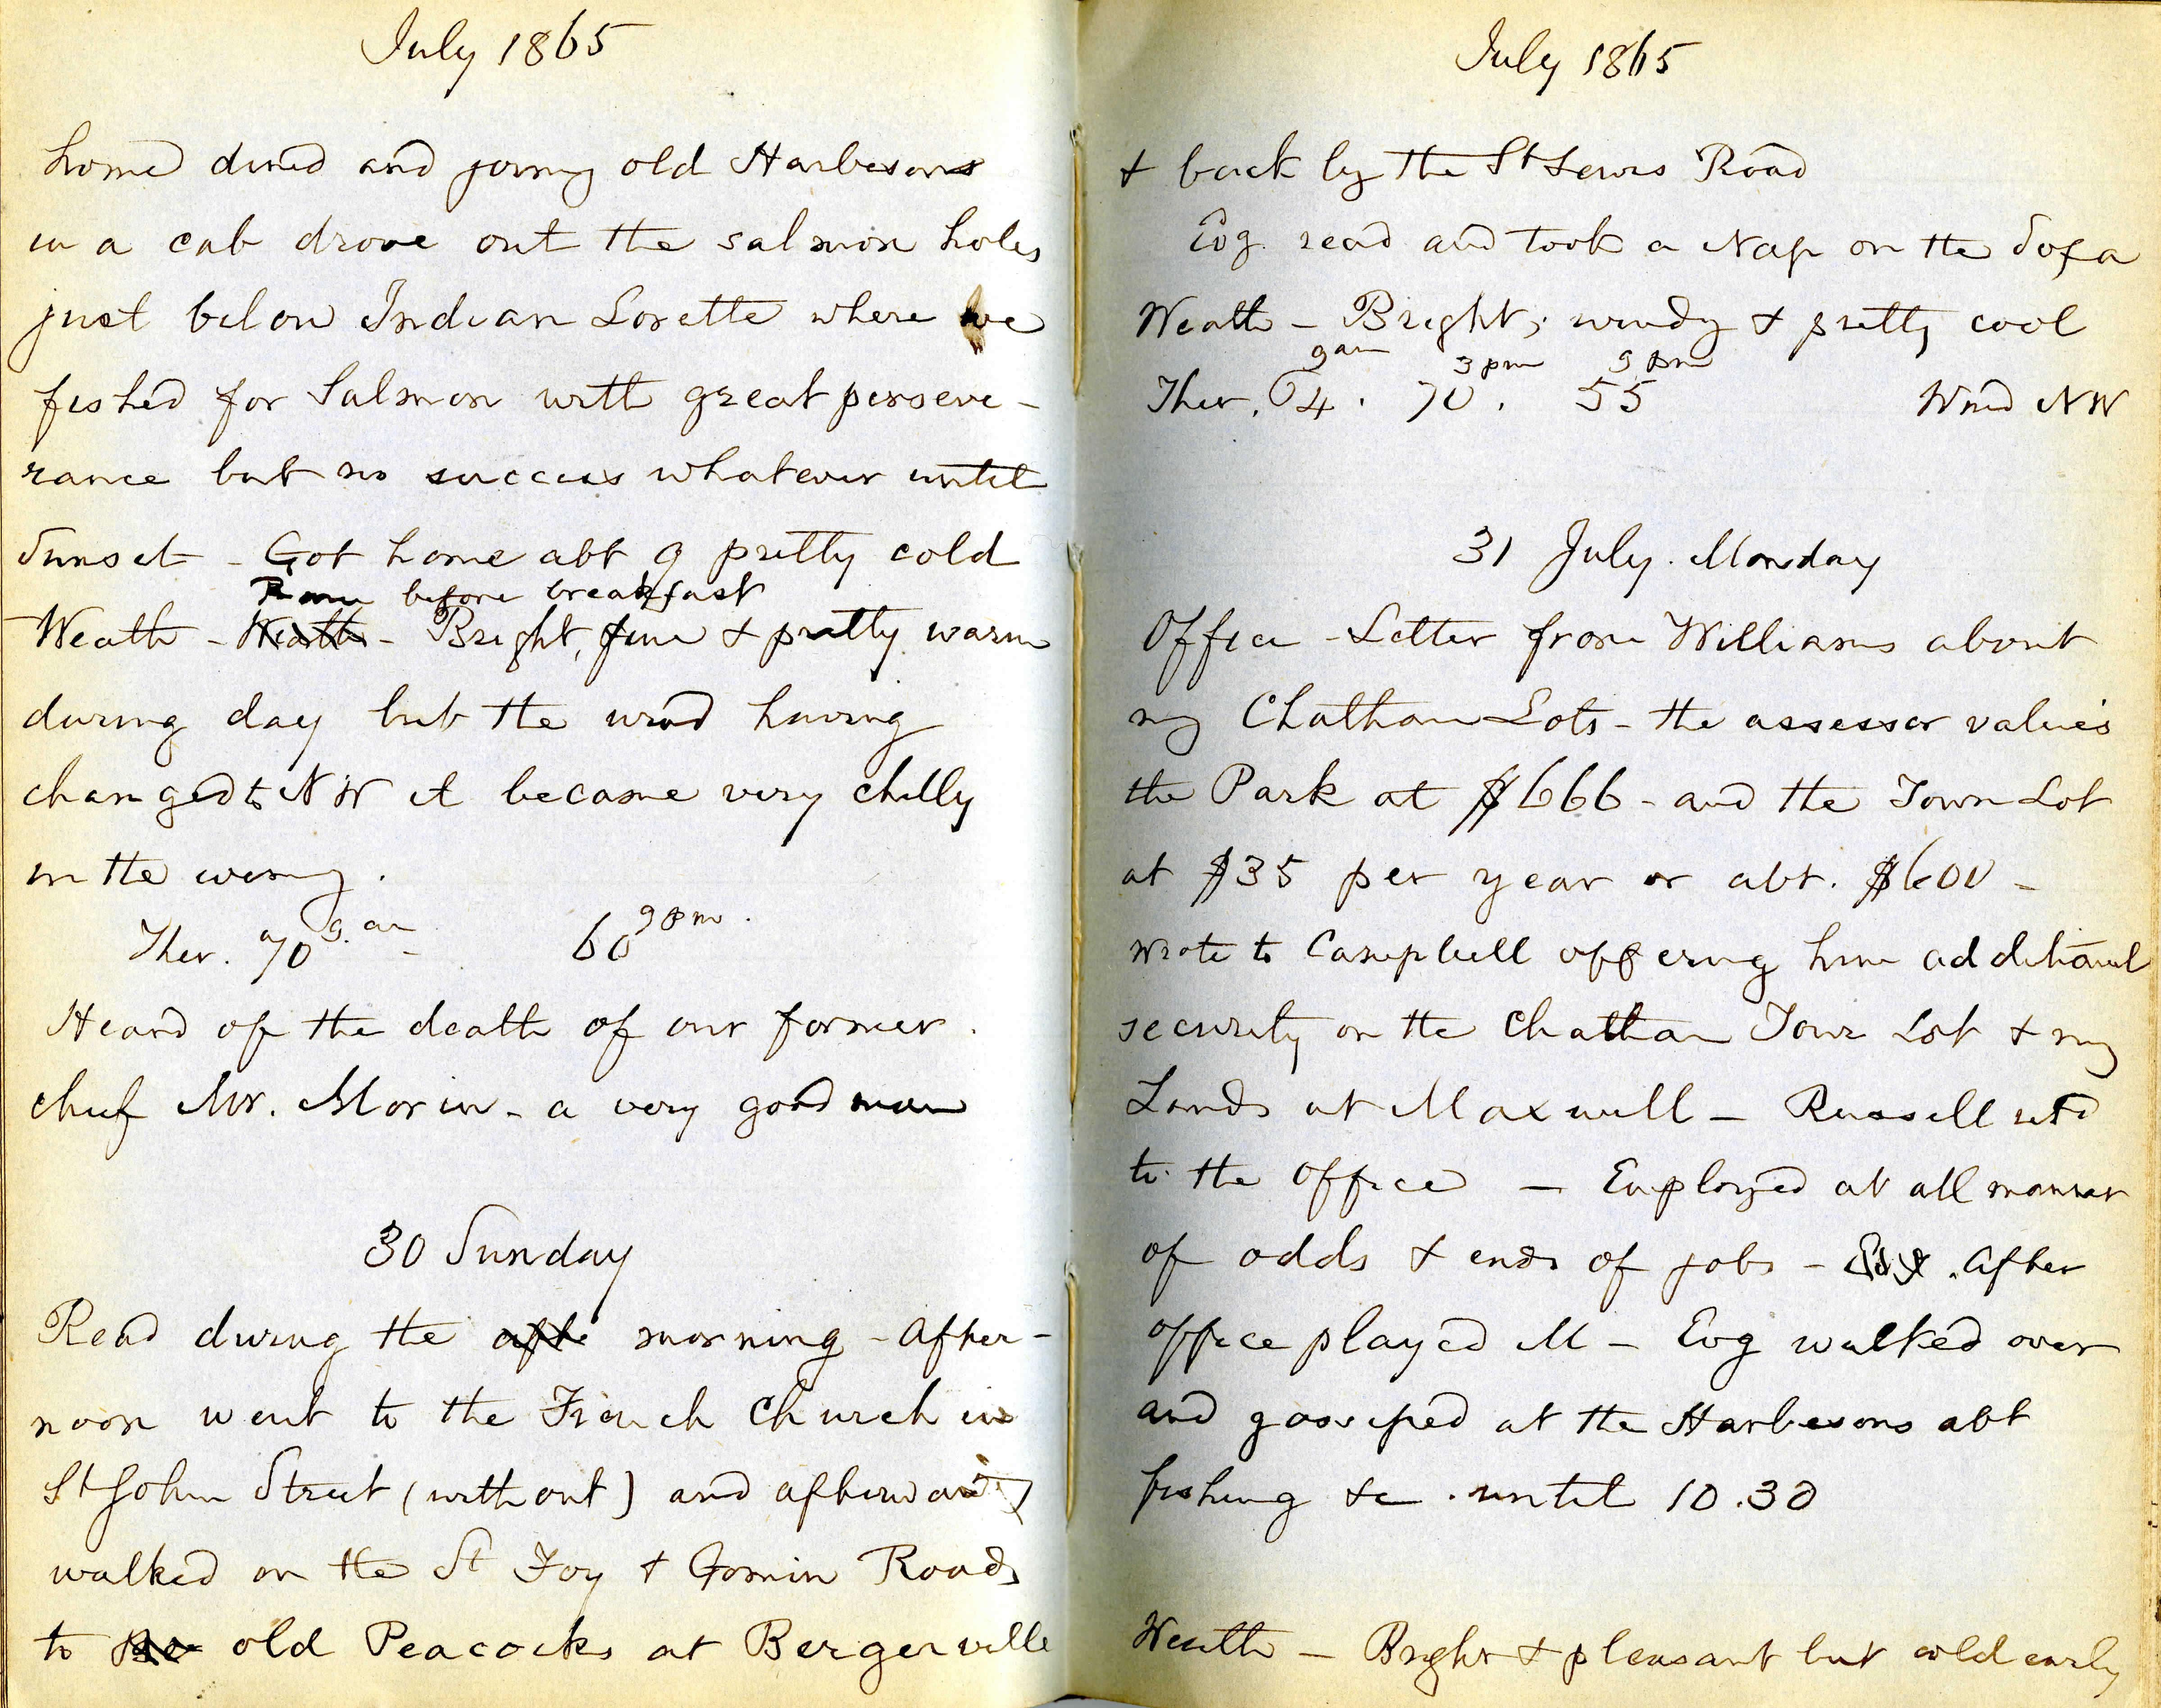 July 1865
home dined and joining old Harbesons
in a cab drove out the salmon holes
just below Indian Lorette where we
fished for Salmon with great perseve-
rance but no success whatever until
Sunset - Got home abt 9 pretty cold
Rain before breakfast
Weath - Weath - Bright, fine & pretty warm
during day but the wind having
changed to NW it became very chilly
in the evening.
Ther. 70 9 am - 60 9 pm.
Heard of the death of our former
chief Mr. Morin - a very good man
30 Sunday
Read during the afte morning - After-
noon went to the French Church in
St John Street (without) and afterwards
walked on the St Foy & Gomin Roads
to old Peacocks at Bergerville
July 1865
& back by the St Lewis Road
Evg. read and took a Nap on the Sofa
Weath - Bright, windy & pretty cool
9 am 3 pm 9 pm
Ther. 64. 70. 55 Wind NW
31 July. Monday
Office - Letter from Williams about
my Chatham Lots - the assessor values
the Park at $666 - and the Town Lot
at $35 per year or abt. $600 -
Wrote to Campbell offering him additional
security on the Chatham Town Lot & my
Lands at Maxwell - Russell retd
to the office - Employed at all manner
of odds & ends of jobs - After
office played M - Evg walked over
and gossiped at the Harbesons abt
fishing &c. until 10.30
Weath - Bright & pleasant but cold early